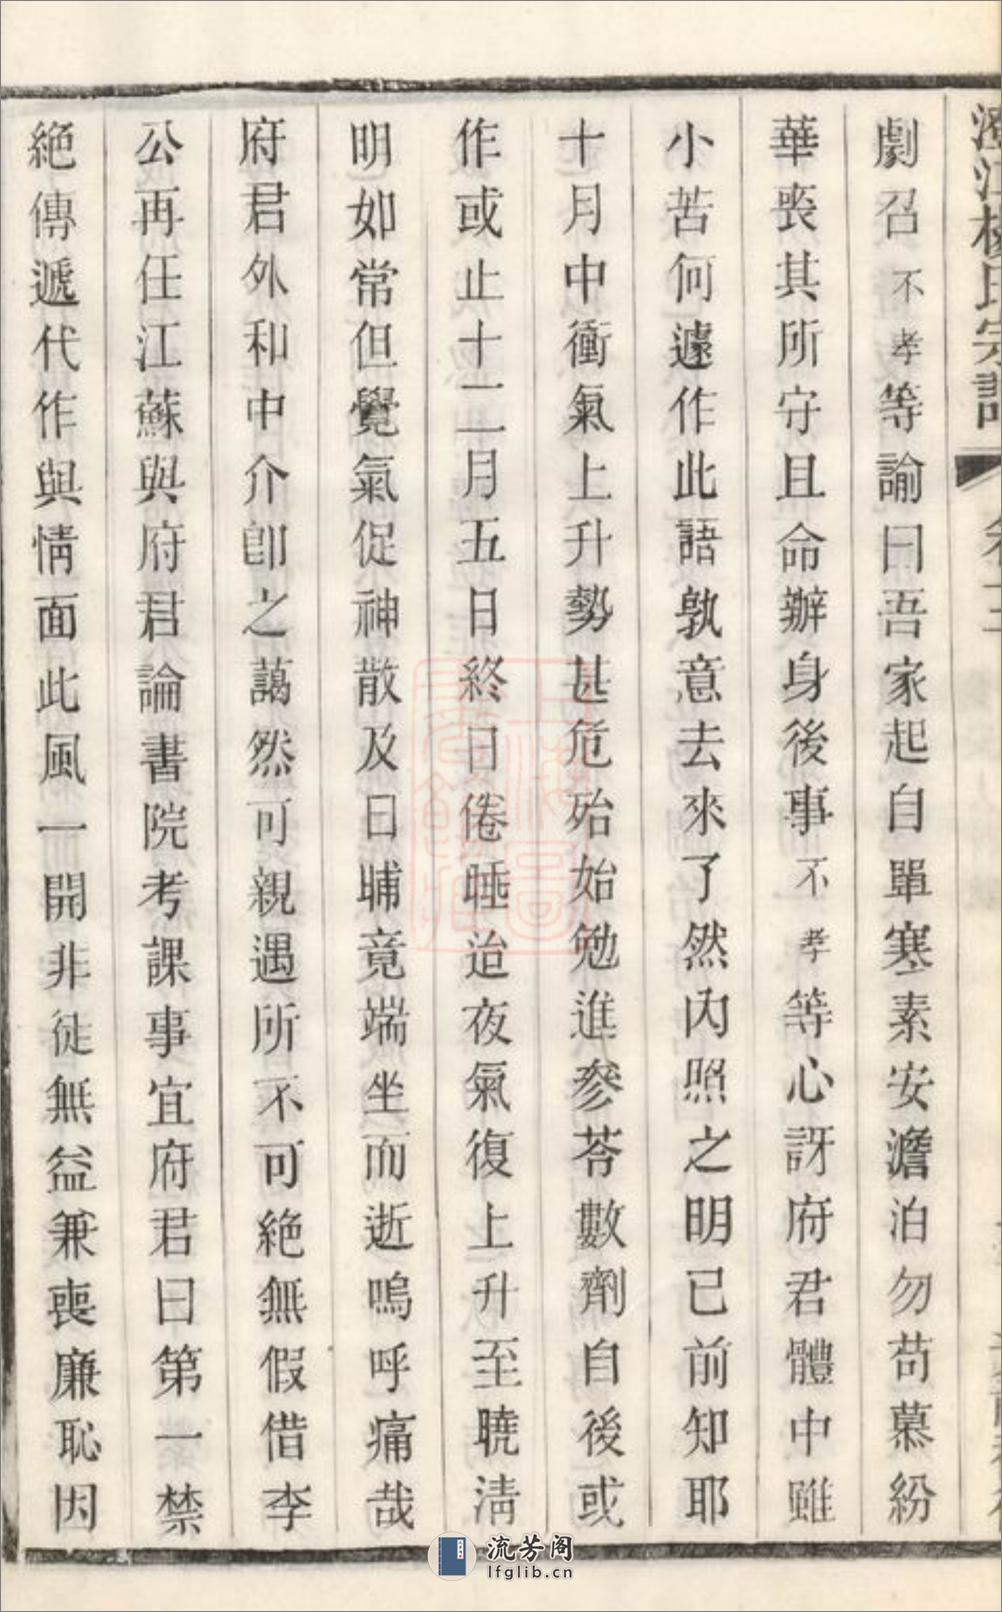 澄江楊氏宗譜
劇召不孝等諭曰吾家起自單寒素安澹泊勿苟慕紛
華喪其所守且命辦身後事不孝等心訝府君體中雖
小苦何遽作此語孰意去來了然內照之明已前知耶
十月中衝氣上升勢甚危殆始勉進參苓數劑自後或
作或止十二月五日終日倦睡迨夜氣復上升至曉淸
明如常但覺氣促神散及日晡竟端坐而逝嗚呼痛哉
府君外和中介卽之藹然可親遇所不可絕無假借李
公再任江蘇與府君論書院考課事宜府君曰第一禁
絕傳遞代作與情面此風一開非徒無益兼喪廉恥因
流芳阁
lfglib.cn